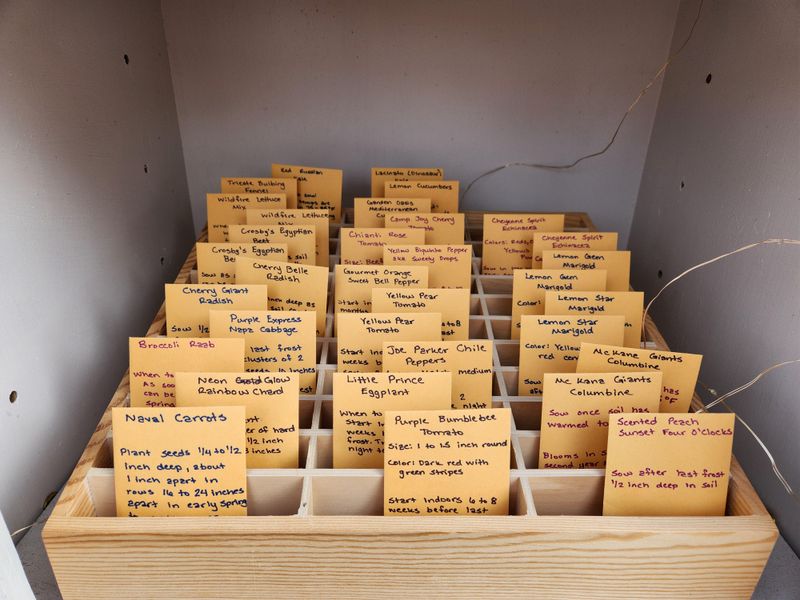 Red Russian
Kale
Sow
Tricote Bulbing
Fennel
Wildfire Lettuce
Mix
Wildfire Lettuce
Mix
Crosby's Egyptian
Beet
Crosby's Egyptian
Beet
Sow
Cherry Belle
Radish
Inch deep as
Cherry Giant
Radish
Sow 1/2
Purple Express
Napa Cabbage
last frost
clusters of 2
Broccoli Raab
When to
As soo
can be
spring
Neon Glow
Rainbow Chard
er of hard
1/2 inch
Naval Carrots
Plant seeds 1/4 to 1/2
inch deep, about
1 inch apart in
rows 16 to 24 inches
apart in early spring
Lacinato (Dinosaur)
Kale
Lemon Cucumbers
Garden Oasis
Mediterranean
Camp Joy Cherry
Tomato
Chianti Rose
Tomato
Size: Bee
Yellow Biquinho Pepper
aka Sweety Drops
Gourmet Orange
Sweet Bell Pepper
Start in
months
Yellow Pear
Tomato
to 8
Yellow Pear
Tomato
Start in
weeks b
Joe Parker Chile
Peppers
medium
2
night
Little Prince
Eggplant
When to
Start in
weeks
frost. T
night to
Purple Bumblebee
Tomato
Size: 1 to 1.5 inch round
Color: Dark red with
green stripes
Start indoors 6 to 8
weeks before last
Cheyenne Spirit
Echinacea
Color: Reds,
Yellows
Cheyenne Spirit
Echinacea
Lemon Gem
Marigold
Lemon Gem
Marigold
Color:
Lemon Star
Marigold
Lemon Star
Marigold
Color: Yellow
red cen
McKana Giants
Columbine
has
°F
McKana Giants
Columbine
Sow once soil has
warmed to
Blooms in s
second year
Scented Peach
Sunset Four O'Clocks
Sow after last frost
1/2 inch deep in soil